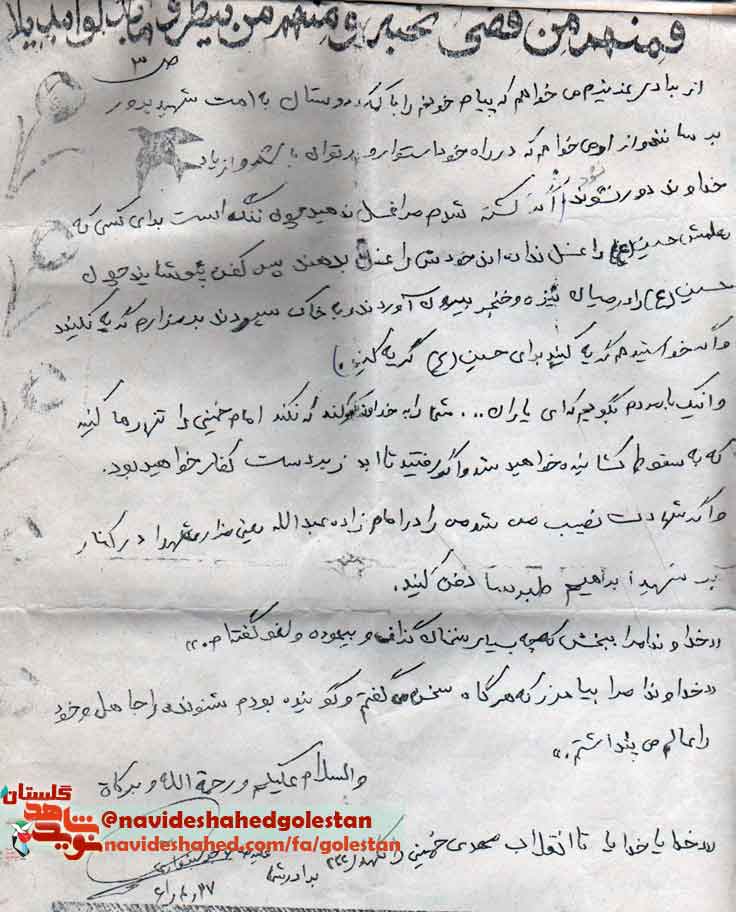 فمنهم من قضی نحبه و منهم من ینتظر و ما بدلوا تبدیلا
ص ۳
از برادری عزیزم می خواهم که پیام خونم را با کمک دوستان به امت شهید پرور
برسانند و از او می خواهم که در راه خود استوار و پرتوان باشد و از یاد
خداوند دور نشوند اگر کشته شدم مرا غسل ندهید چون ننگ است برای کسی که
معلمش حسین (ع) را غسل نداده اند خودش را غسل بدهند پس کفن نپوشانید چون
حسین (ع) را در میان نیزه و خنجر بیرون آوردند و به خاک سپردند بر مزارم گریه نکنید
و اگر خواستید هم گریه کنید برای حسین (ع) گریه کنید.
و اینک با مردم بگویم که ای یاران ... شما را به خدا که نکند امام خمینی را تنها رها کنید
که به سقوط کشانیده خواهید شد و اگر رفتید تا ابد زیر دست کفار خواهید بود.
و اگر شهادت نصیب من شد من را در امام زاده عبدالله یعنی مزار شهدا در کنار
شهید ابراهیم طبرسا دفن کنید.
«خداوندا مرا ببخش که چه بسیار سخنان گزاف و بیهوده و لغو گفته ام.»
«خداوندا مرا بیامرز که هرگاه سخن می گفتم و گوینده بودم شنونده را جاهل و خود
را عالم می پنداشتم.»
والسلام علیکم و رحمة الله و برکاة
«خدایا خدایا تا انقلاب مهدی خمینی را نگهدار»
برادر شما
گلستان
نوید شاهد
@navideshahedgolestan
navideshahed.com/fa/golestan